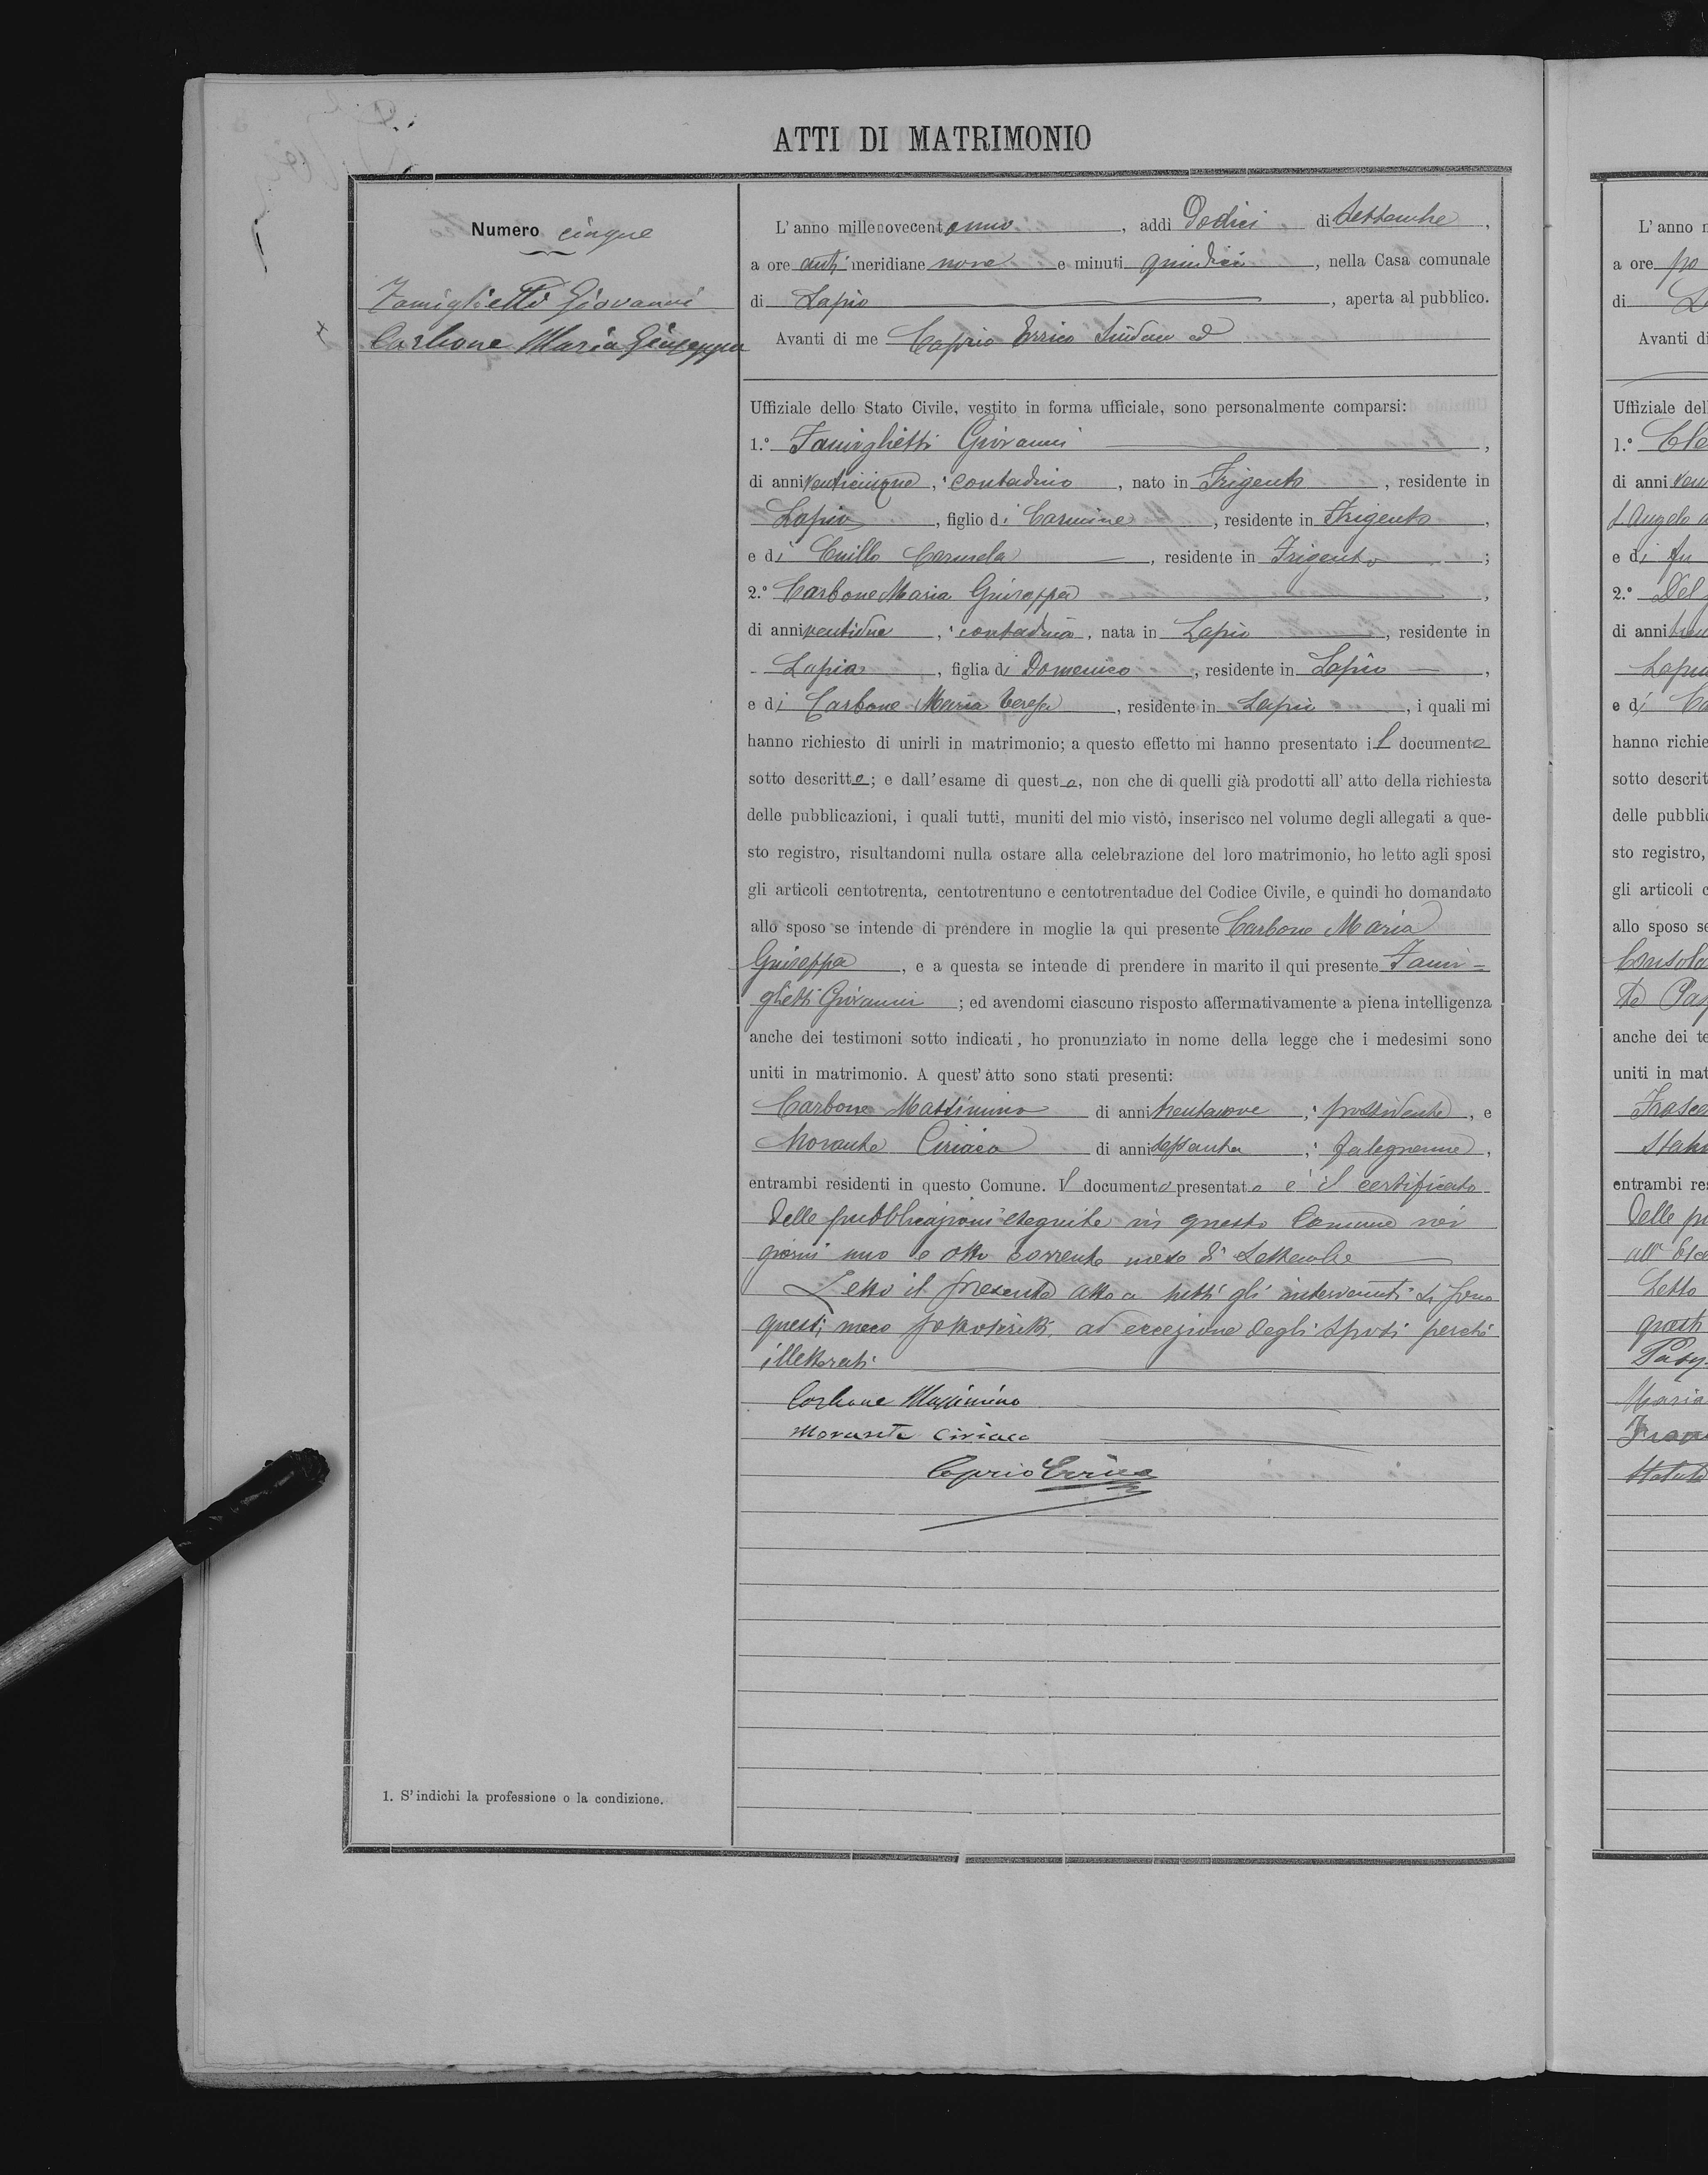 ATTI DI MATRIMONIO
Numero cinque
Famiglietti Giovanni
Carbone Maria Giuseppa
1. S'indichi la professione o la condizione.
L'anno millenovecent o uno, addi Dodici di Settembre,
a ore anti meridiane nove e minuti quindici, nella Casa comunale
di Lapio, aperta al pubblico.
Avanti di me Caprio Errico Sindaco ed
Uffiziale dello Stato Civile, vestito in forma ufficiale, sono personalmente comparsi:
1.° Famiglietti Giovanni,
di anni venticinque, contadino, nato in Frigento, residente in
Lapio, figlio di Carmine, residente in Frigento,
e di Cuillo Carmela, residente in Frigento;
2.° Carbone Maria Giuseppa,
di anni ventidue, contadina, nata in Lapio, residente in
Lapio, figlia di Domenico, residente in Lapio,
e di Carbone Maria Teresa, residente in Lapio, i quali mi
hanno richiesto di unirli in matrimonio; a questo effetto mi hanno presentato il documento
sotto descritto; e dall'esame di questo, non che di quelli già prodotti all'atto della richiesta
delle pubblicazioni, i quali tutti, muniti del mio visto, inserisco nel volume degli allegati a que-
sto registro, risultandomi nulla ostare alla celebrazione del loro matrimonio, ho letto agli sposi
gli articoli centotrenta, centotrentuno e centotrentadue del Codice Civile, e quindi ho domandato
allo sposo se intende di prendere in moglie la qui presente Carbone Maria
Giuseppa, e a questa se intende di prendere in marito il qui presente Fami=
glietti Giovanni; ed avendomi ciascuno risposto affermativamente a piena intelligenza
anche dei testimoni sotto indicati, ho pronunziato in nome della legge che i medesimi sono
uniti in matrimonio. A quest'atto sono stati presenti:
Carbone Massimino di anni trentanove, possidente, e
Morante Ciriaco di anni sessanta, falegname,
entrambi residenti in questo Comune. Il documento presentato è il certificato
delle pubblicazioni eseguite in questo Comune nei
giorni uno e otto corrente mese di Settembre
Letto il presente atto a tutti gli intervenuti si sono
questi meco sottoscritti, ad eccezione degli sposi perchè
illetterati
Carbone Massimino
Morante Ciriaco
Caprio Errico
L'anno
a ore po
di
Avanti di
Uffiziale del
1.°
di anni
S. Angelo
e di fu
2.° Del
di anni
Lapio
e di
hanno richie
sotto descrit
delle pubblic
sto registro,
gli articoli c
allo sposo se
Consola
anche dei te
uniti in mat
entrambi res
delle pu
Letto
questi
Maria